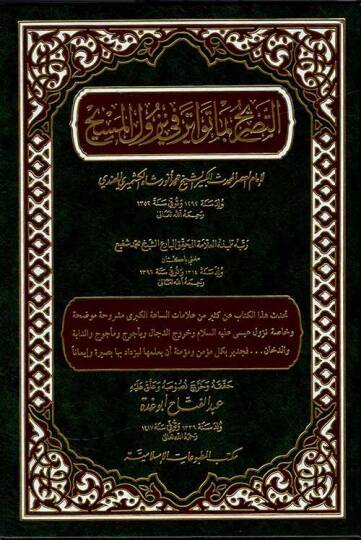 التصريح بما تواتر في نزول المسيح
للإمام العصر المحدث الكبير الشيخ محمد أنور شاه الكشميري الهندي
ولد سنة ١٢٩٢ وتوفي سنة ١٣٥٢
رحمه الله تعالى
رتبه تلميذه العلامة المحقق البارع الشيخ محمد شفيع
مفتي باكستان
ولد سنة ١٣١٤ وتوفي سنة ١٣٩٦
رحمه الله تعالى
تحدث هذا الكتاب عن كثير من علامات الساعة الكبرى مشروحة موضحة
وبخاصة نزول عيسى عليه السلام وخروج الدجال ويأجوج ومأجوج والدابة
والدخان ... فجدير بكل مؤمن ومؤمنة أن يعلمها ليزداد بها بصيرة وإيمانا
حققه وخرج نصوصه وعلق عليه
عبد الفتاح أبو غدة
ولد سنة ١٣٣٦ وتوفي سنة ١٤١٧
رحمه الله تعالى
مكتب المطبوعات الإسلامية